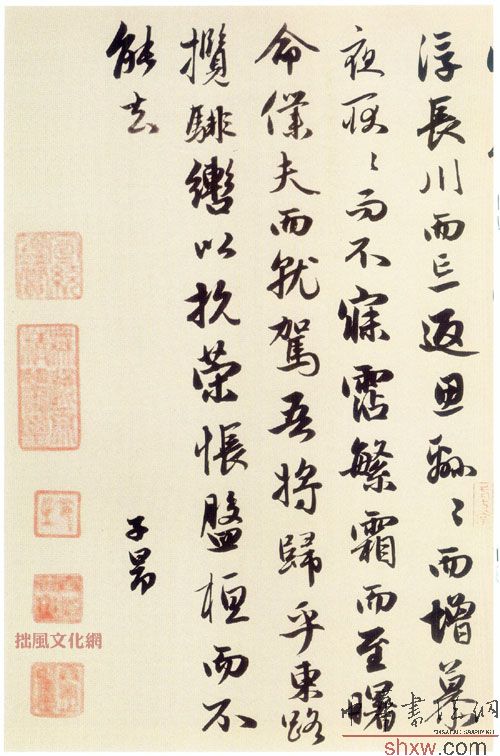 浮長川而忘返思綿〻而增慕
夜耿〻而不寐霑繁霜而至曙
命僕夫而就駕吾將歸乎東路
攬騑轡以抗策悵盤桓而不
能去
子昂
拙風文化網
中國書法網
shxw.com